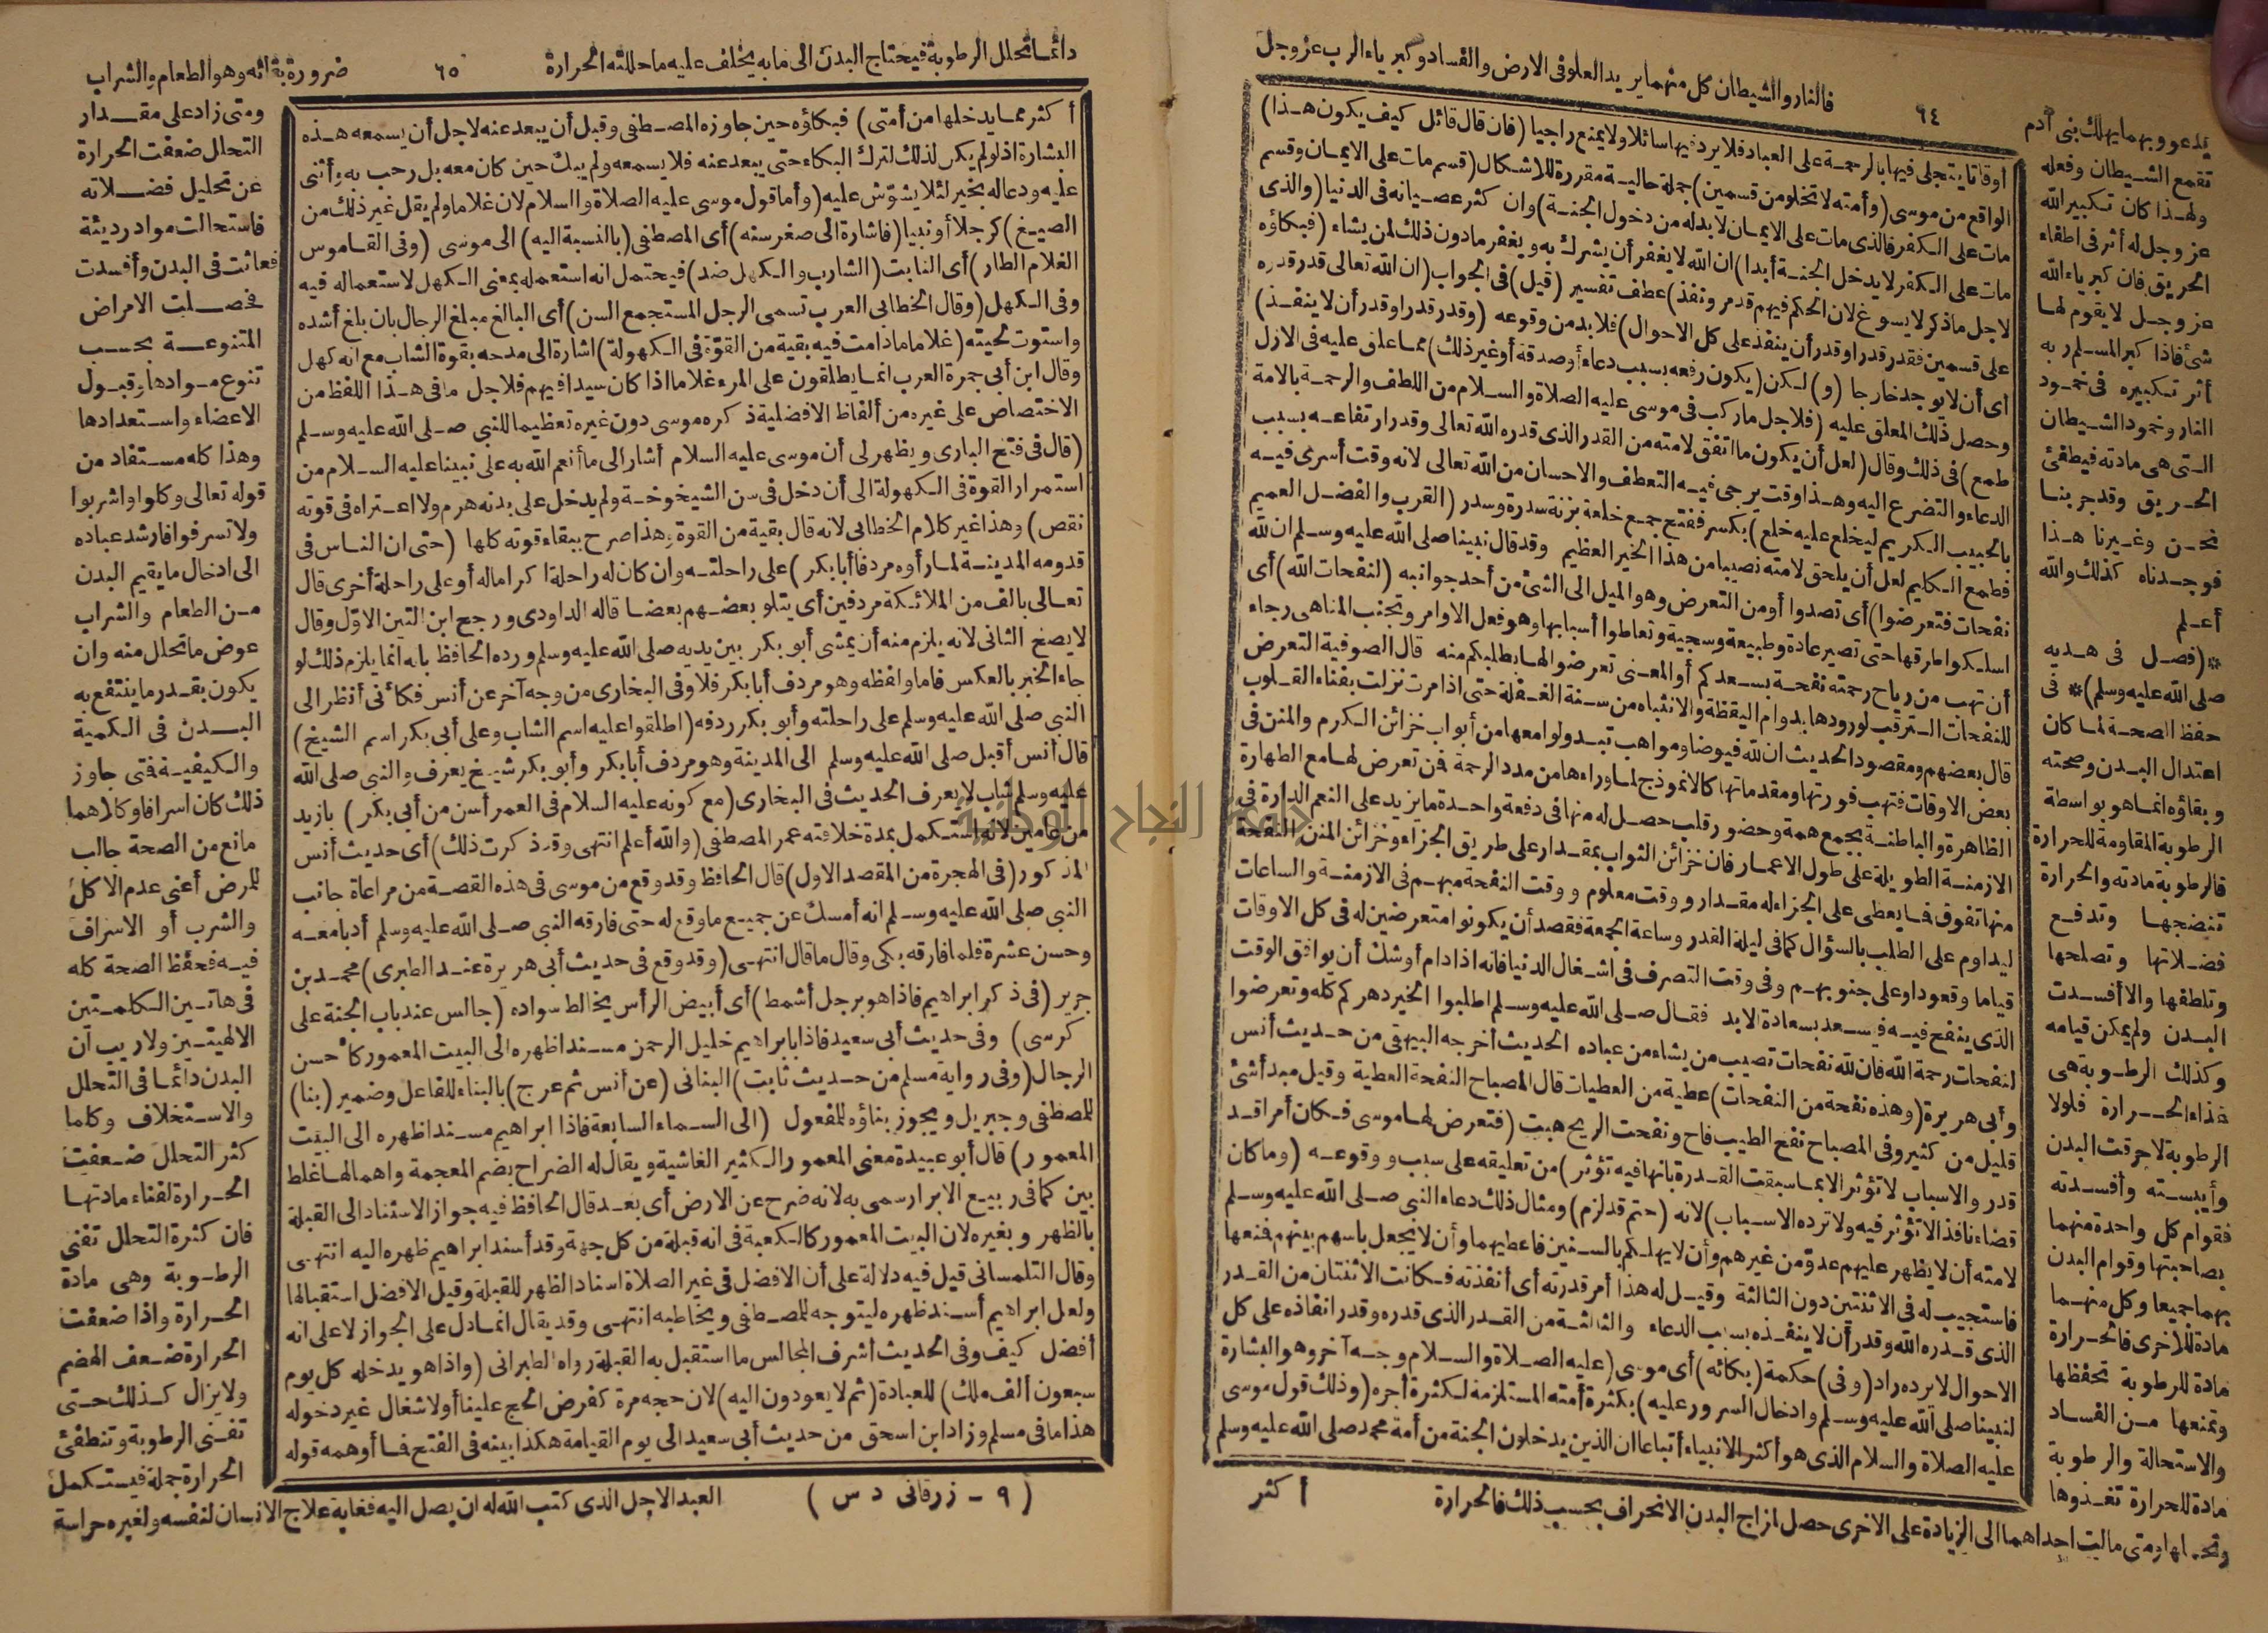 فالنار والشيطان كل منهما يريد العلو فى الارض والفساد وكبرياء الرب عز وجل
٦٤
يدعو وبهما يهلك بنى آدم
تقمع الشيطان وفعله
ولهذا كان تكبير الله
عز وجل له أثر فى اطفاء
الحريق فان كبرياء الله
عز وجل لا يقوم لها
شئ فاذا كبر المسلم ربه
أثر تكبيره فى خمود
النار وخمود الشيطان
التى هى مادته فيطفئ
الحريق وقد جربنا
نحن وغيرنا هذا
فوجدناه كذلك والله
أعلم
*(فصل فى هديه
صلى الله عليه وسلم)* فى
حفظ الصحة لما كان
اعتدال البدن وصحته
وبقاؤه انما هو بواسطة
الرطوبة المقاومة للحرارة
فالرطوبة مادته والحرارة
تنضجها وتدفع
فضلاتها وتصلحها
وتلطفها والا أفسدت
البدن ولم يمكن قيامه
وكذلك الرطوبة هى
غذاء الحرارة فلولا
الرطوبة لاحرقت البدن
وأيبسته وأفسدته
فقوام كل واحدة منهما
بصاحبتها وقوام البدن
بهما جميعا وكل منهما
مادة للاخرى فالحرارة
مادة للرطوبة تحفظها
وتمنعها من الفساد
والاستحالة والرطوبة
مادة للحرارة تغذوها
ومتى مالت احداهما الى الزيادة على الاخرى حصل لمزاج البدن الانحراف بحسب ذلك فالحرارة
أوقاتا يتجلى فيها بالرحمة على العباد فلا يرد فيها سائلا ولا يمنع راجيا (فان قال قائل كيف يكون هذا)
الواقع من موسى (وأمته لا تخلو من قسمين) جملة حالية مقررة للاشكال (قسم مات على الايمان وقسم
مات على الكفر فالذى مات على الايمان لا بد له من دخول الجنة) وان كثر عصيانه فى الدنيا (والذى
مات على الكفر لا يدخل الجنة أبدا) ان الله لا يغفر أن يشرك به ويغفر ما دون ذلك لمن يشاء (فبكاؤه
لاجل ما ذكر لا يسوغ لان الحكم فيهم قد مر ونفذ) عطف تفسير (قيل) فى الجواب (ان الله تعالى قدر قدره
على قسمين فقدر قدرا وقدر أن ينفذ على كل الاحوال) فلا بد من وقوعه (وقدر قدرا وقدر أن لا ينفذ)
أى أن لا يوجد خارجا (و) لكن (يكون رفعه بسبب دعاء أو صدقة أو غير ذلك) مما علق عليه فى الازل
وحصل ذلك المعلق عليه (فلاجل ما ركب فى موسى عليه الصلاة والسلام من اللطف والرحمة بالامة
طمع) فى ذلك وقال (لعل أن يكون ما اتفق لامته من القدر الذى قدره الله تعالى وقدر ارتفاعه بسبب
الدعاء والتضرع اليه وهذا وقت يرجى فيه التعطف والاحسان من الله تعالى لانه وقت أسرى فيه
بالحبيب الكريم ليخلع عليه خلع) بكسر ففتح جمع خلعة بزنة سدرة وسدر (القرب والفضل العميم
فطمع الكليم لعل أن يلحق لامته نصيبا من هذا الخير العظيم وقد قال نبينا صلى الله عليه وسلم ان لله
نفحات فتعرضوا) أى تصدوا أو من التعرض وهو الميل الى الشئ من أحد جوانبه (لنفحات الله) أى
اسلكوا طرقها حتى تصير عادة وطبيعة وسجية وتعاطوا أسبابها وهو فعل الاوامر وتجنب المناهى رجاء
أن تهب من رياح رحمته نفحة بسعدكم أو المعنى تعرضوا لها بطلبكم منه قال الصوفية التعرض
للنفحات الترقب لورودها بدوام اليقظة والانتباه من سنة الغفلة حتى اذا مرت نزلت بفناء القلوب
قال بعضهم ومقصود الحديث ان لله فيوضا ومواهب تبدو لوامعها من أبواب خزائن الكرم والمنن فى
بعض الاوقات فتهب فورتها ومقدماتها كالانموذج لما وراءها من مدد الرحمة فمن تعرض لها مع الطهارة
الظاهرة والباطنة بجمع همة وحضور قلب حصل له منها فى دفعة واحدة ما يزيد على النعم الدارة فى
الازمنة الطويلة على طول الاعمار فان خزائن الثواب بمقدار على طريق الجزاء وخزائن المنن النفحة
منها تفوق فما يعطى على الجزاء له مقدار ووقت معلوم ووقت النفحة مبهم فى الازمنة والساعات
ليداوم على الطلب بالسؤال كما فى ليلة القدر وساعة الجمعة فقصد أن يكونوا متعرضين له فى كل الاوقات
قياما وقعودا وعلى جنوبهم وفى وقت التصرف فى اشغال الدنيا فانه اذا دام أوشك أن يوافق الوقت
الذى ينفح فيه فيسعد بسعادة الابد فقال صلى الله عليه وسلم اطلبوا الخير دهركم كله وتعرضوا
لنفحات رحمة الله فان لله نفحات تصيب من يشاء من عباده الحديث أخرجه البيهقى من حديث أنس
وأبى هريرة (وهذه نفحة من النفحات) عطية من العطيات قال المصباح النفحة العطية وقيل مبدأ شئ
قليل من كثير وفى المصباح نفح الطيب فاح ونفحت الريح هبت (فتعرض لها موسى فكان أمرا قد
قدر والاسباب لا تؤثر الا بما سبقت القدرة بانها فيه تؤثر) من تعليقه على سبب ووقوعه (وما كان
قضاء نافذا لا تؤثر فيه ولا ترده الاسباب) لانه (حتم قد لزم) ومثال ذلك دعاء النبى صلى الله عليه وسلم
لامته أن لا يظهر عليهم عدوّ من غيرهم وأن لا يهلكهم بالسنين فاعطيهما وأن لا يجعل باسهم بينهم فمنعها
فاستجيب له فى الاثنتين دون الثالثة وقيل له هذا أمر قدرته أى أنفذته فكانت الاثنتان من القدر
الذى قدره الله وقدر أن لا ينفذه بسبب الدعاء والثالثة من القدر الذى قدره وقدر انفاذه على كل
الاحوال لا يرده راد (وفى) حكمة (بكائه) أى موسى (عليه الصلاة والسلام وجه آخر وهو البشارة
لنبينا صلى الله عليه وسلم وادخال السرور عليه) بكثرة أمته المستلزمة لكثرة أجره (وذلك قول موسى
عليه الصلاة والسلام الذى هو أكثر الانبياء أتباعا ان الذين يدخلون الجنة من أمة محمد صلى الله عليه وسلم
أكثر
دائما تحلل الرطوبة فيحتاج البدن الى ما به يخلف عليه ما حللته الحرارة
٦٥
ضرورة بقائه وهو الطعام والشراب
أكثر مما يدخلها من أمتى) فبكاؤه حين جاوزه المصطفى وقبل أن يبعد عنه لاجل أن يسمعه هذه
البشارة اذ لو لم يكن لذلك لترك البكاء حتى يبعد عنه فلا يسمعه ولم يبك حين كان معه بل رحب به وأثنى
عليه ودعا له بخير لئلا يشوّش عليه (وأما قول موسى عليه الصلاة والسلام لان غلاما ولم يقل غير ذلك من
الصيغ) كرجلا أو نبيا (فاشارة الى صغر سنه) أى المصطفى (بالنسبة اليه) الى موسى (وفى القاموس
الغلام الطار) أى النابت (الشارب والكهل ضد) فيحتمل انه استعمله بمعنى الكهل لاستعماله فيه
وفى الكهل (وقال الخطابى العرب تسمى الرجل المستجمع السن) أى البالغ مبلغ الرجال بان بلغ أشده
واستوت لحيته (غلاما ما دامت فيه بقية من القوّة فى الكهولة) اشارة الى مدحه بقوة الشاب مع انه كهل
وقال ابن أبى جمرة العرب انما يطلقون على المرء غلاما اذا كان سيدا فيهم فلاجل ما فى هذا اللفظ من
الاختصاص على غيره من ألفاظ الافضلية ذكره موسى دون غيره تعظيما للنبى صلى الله عليه وسلم
(قال فى فتح البارى ويظهر لى أن موسى عليه السلام أشار الى ما أنعم الله به على نبينا عليه السلام من
استمرار القوة فى الكهولة الى أن دخل فى سن الشيخوخة ولم يدخل على بدنه هرم ولا اعتراه فى قوته
نقص) وهذا غير كلام الخطابى لانه قال بقية من القوة وهذا صرح ببقاء قوته كلها (حتى ان الناس فى
قدومه المدينة لما رأوه مردفا أبا بكر) على راحلته وان كان له راحلة اكراما له أو على راحلة أخرى قال
تعالى بالف من الملائكة مردفين أى يتلو بعضهم بعضا قاله الداودى ورجح ابن التين الاوّل وقال
لا يصح الثانى لانه يلزم منه أن يمشى أبو بكر بين يديه صلى الله عليه وسلم ورده الحافظ بانه انما يلزم ذلك لو
جاء الخبر بالعكس فاما ولفظه وهو مردف أبا بكر فلا وفى البخارى من وجه آخر عن أنس فكأنى أنظر الى
النبى صلى الله عليه وسلم على راحلته وأبو بكر ردفه (اطلقوا عليه اسم الشاب وعلى أبى بكر اسم الشيخ)
قال أنس أقبل صلى الله عليه وسلم الى المدينة وهو مردف أبا بكر وأبو بكر شيخ يعرف والنبى صلى الله
عليه وسلم شاب لا يعرف الحديث فى البخارى (مع كونه عليه السلام فى العمر أسن من أبى بكر) بازيد
من عامين لانه استكمل بمدة خلافته عمر المصطفى (والله أعلم انتهى وقد ذكرت ذلك) أى حديث أنس
المذكور (فى الهجرة من المقصد الاول) قال الحافظ وقد وقع من موسى فى هذه القصة من مراعاة جانب
النبى صلى الله عليه وسلم انه أمسك عن جميع ما وقع له حتى فارقه النبى صلى الله عليه وسلم أدبا معه
وحسن عشرة فلما فارقه بكى وقال ما قال انتهى (وقد وقع فى حديث أبى هريرة عند الطبرى) محمد بن
جرير (فى ذكر ابراهيم فاذا هو برجل أشمط) أى أبيض الرأس يخالط سواده (جالس عند باب الجنة على
كرسى) وفى حديث أبى سعيد فاذا بابراهيم خليل الرحمن مسندا ظهره الى البيت المعمور كأحسن
الرجال (وفى رواية مسلم من حديث ثابت) البنانى (عن أنس ثم عرج) بالبناء للفاعل وضمير (بنا)
للمصطفى وجبريل ويجوز بناؤه للمفعول (الى السماء السابعة فاذا ابراهيم مسندا ظهره الى البيت
المعمور) قال أبو عبيدة معنى المعمور الكثير الغاشية ويقال له الضراح بضم المعجمة واهمالها غلط
بين كما فى ربيع الابرار سمى به لانه ضرح عن الارض أى بعد قال الحافظ فيه جواز الاستناد الى القبلة
بالظهر وبغيره لان البيت المعمور كالكعبة فى انه قبلة من كل جهة وقد أسند ابراهيم ظهره اليه انتهى
وقال التلمسانى قيل فيه دلالة على أن الافضل فى غير الصلاة اسناد الظهر للقبلة وقيل الافضل استقبالها
ولعل ابراهيم أسند ظهره ليتوجه للمصطفى ويخاطبه انتهى وقد يقال انما دل على الجواز لا على انه
أفضل كيف وفى الحديث أشرف المجالس ما استقبل به القبلة رواه الطبرانى (واذا هو يدخله كل يوم
سبعون ألف ملك) للعبادة (ثم لا يعودون اليه) لان حجه مرة كفرض الحج علينا أو لاشغال غير دخوله
هذا ما فى مسلم وزاد ابن اسحق من حديث أبى سعيد الى يوم القيامة هكذا بينه فى الفتح فما أوهمه قوله
ومتى زاد على مقدار
التحلل ضعفت الحرارة
عن تحليل فضلاته
فاستحالت مواد رديئة
فعاثت فى البدن وأفسدت
فحصلت الامراض
المتنوعة بحسب
تنوع موادها وقبول
الاعضاء واستعدادها
وهذا كله مستفاد من
قوله تعالى وكلوا واشربوا
ولا تسرفوا فارشد عباده
الى ادخال ما يقيم البدن
من الطعام والشراب
عوض ما تحلل منه وان
يكون بقدر ما ينتفع به
البدن فى الكمية
والكيفية فمتى جاوز
ذلك كان اسرافا وكلاهما
مانع من الصحة جالب
للمرض أعنى عدم الاكل
والشرب أو الاسراف
فيه فحفظ الصحة كله
فى هاتين الكلمتين
الالهيتين ولا ريب أن
البدن دائما فى التحلل
والاستخلاف وكلما
كثر التحلل ضعفت
الحرارة لفناء مادتها
فان كثرة التحلل تفنى
الرطوبة وهى مادة
الحرارة واذا ضعفت
الحرارة ضعف الهضم
ولا يزال كذلك حتى
تفنى الرطوبة وتنطفئ
الحرارة جملة فيستكمل
العبد الاجل الذى كتب الله له ان يصل اليه فغاية علاج الانسان لنفسه ولغيره حراسة
(٩ - زرقانى د س)
جامعة النجاح الوطنية